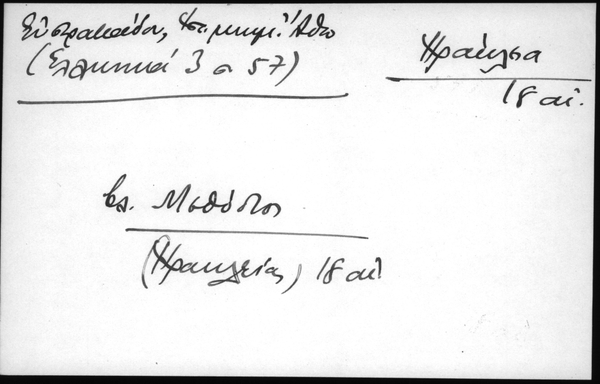 Εὐστρατιάδου, Ἱστ. μνημ. Ἄθω
(Ἑλληνικά 3 σ 57)
Ἡράκλεια
18 αἰ.
βλ. Μεθόδιος
(Ἡρακλείας) 18 αἰ